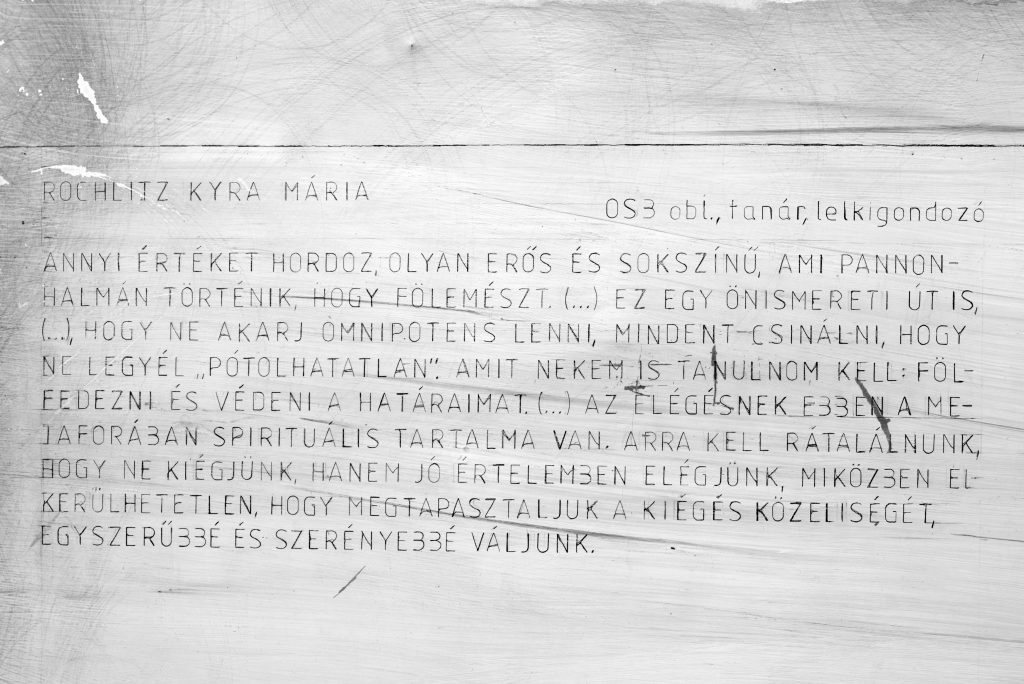 ROCHLITZ KYRA MÁRIA
OSB obl., tanár, lelkigondozó
ANNYI ÉRTÉKET HORDOZ, OLYAN ERŐS ÉS SOKSZÍNŰ, AMI PANNON-
HALMÁN TÖRTÉNIK, HOGY FÖLEMÉSZT. (...) EZ EGY ÖNISMERETI ÚT IS,
(...), HOGY NE AKARJ OMNIPOTENS LENNI, MINDENT CSINÁLNI, HOGY
NE LEGYÉL „PÓTOLHATATLAN”. AMIT NEKEM IS TANULNOM KELL: FÖL-
FEDEZNI ÉS VÉDENI A HATÁRAIMAT. (...) AZ ELÉGÉSNEK EBBEN A ME-
TAFORÁBAN SPIRITUÁLIS TARTALMA VAN. ARRA KELL RÁTALÁLNUNK,
HOGY NE KIÉGJÜNK, HANEM JÓ ÉRTELEMBEN ELÉGJÜNK, MIKÖZBEN EL-
KERÜLHETETLEN, HOGY MEGTAPASZTALJUK A KIÉGÉS KÖZELISÉGÉT,
EGYSZERŰBBÉ ÉS SZERÉNYEBBÉ VÁLJUNK.